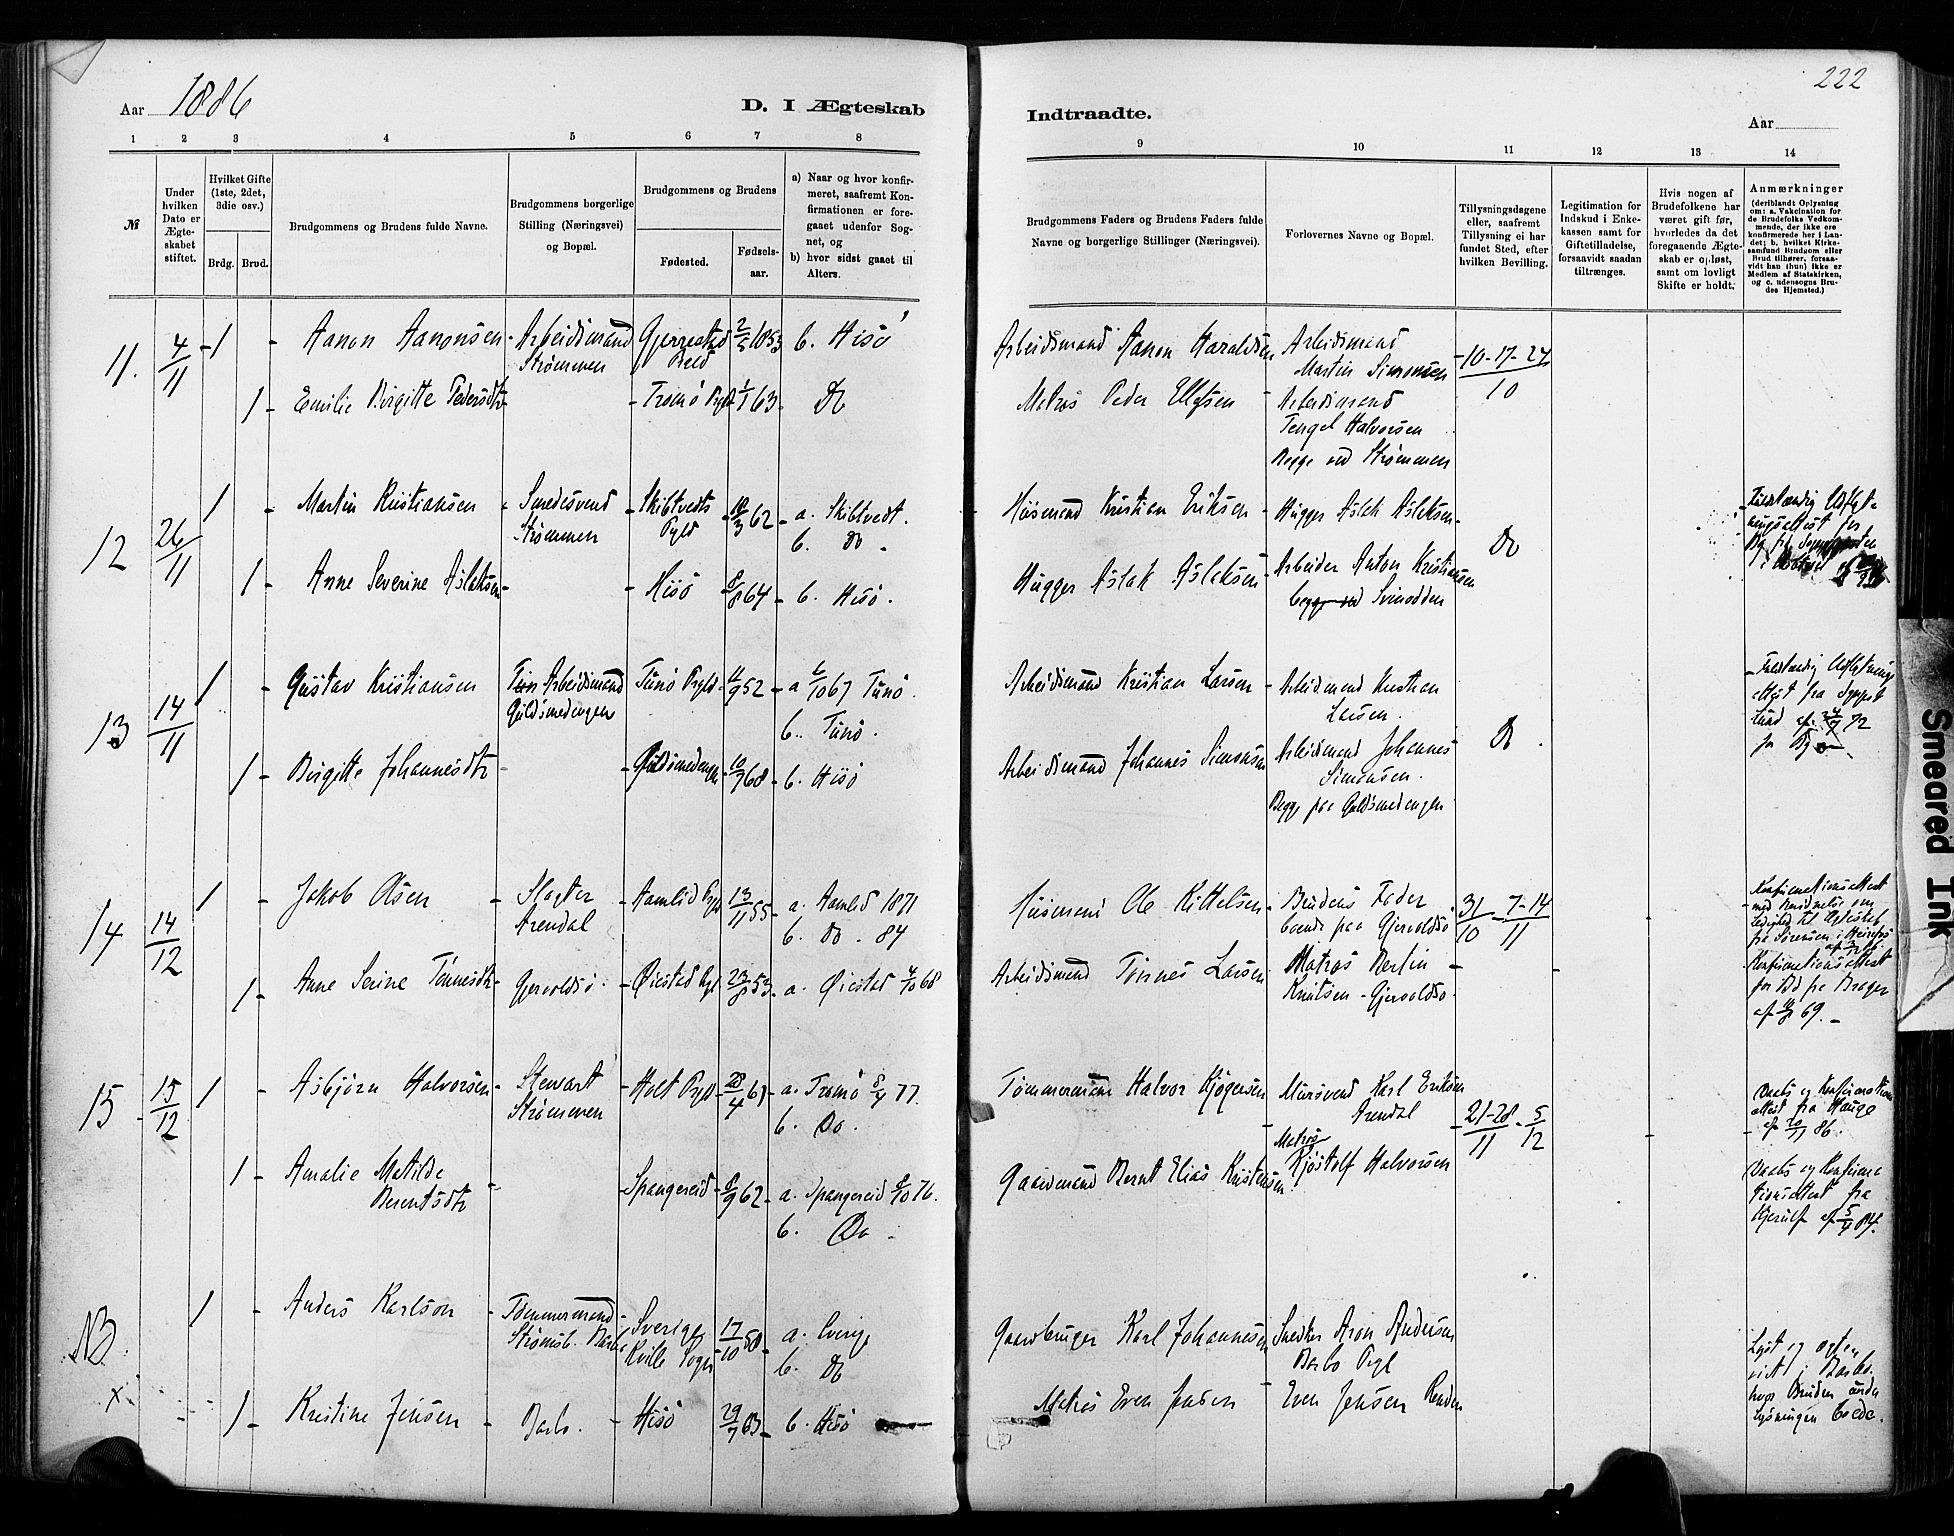 222
Aar 1886
D. I Ægteskab
Indtraadte.
Aar
1 2 3 4 5 6 7 8
9 10 11 12 13 14
№
Under
hvilken
Dato er
Ægte-
skabet
stiftet.
Hvilket Gifte
(1ste, 2det,
3die osv.)
Brdg. Brud.
Brudgommens og Brudens fulde Navne.
Brudgommens borgerlige
Stilling (Næringsvei)
og Bopæl.
Brudgommens og Brudens
Fødested.
Fødsels-
aar.
a) Naar og hvor konfir-
meret, saafremt Kon-
firmationen er fore-
gaaet udenfor Sog-
net, og
b) hvor sidst gaaet til
Alters.
Brudgommens Faders og Brudens Faders fulde
Navne og borgerlige Stillinger (Næringsvei).
Forlovernes Navne og Bopæl.
Tillysningsdagene
eller, saafremt
Tillysning ei har
fundet Sted, efter
hvilken Bevilling.
Legitimation for
Indskud i Enke-
kassen samt for
Giftetilladelse,
forsaavidt saadan
tiltrænges.
Hvis nogen af
Brudefolkene har
været gift før,
hvorledes da det
foregaaende Ægte-
skab er opløst,
samt om lovligt
Skifte er holdt.
Anmærkninger
(deriblandt Oplysning
om: a. Vakcination for
de Brudefolks Vedkom-
mende, der ikke ere
konfirmerede her i Lan-
det; b. hvilket Kirke-
samfund Brudgom eller
Brud tilhører, forsaa-
vidt han (hun) ikke er
Medlem af Statskirken,
og c. udensogns Bru-
des Hjemsted.)
11. 4/11 1 Aanon Aanonsen Arbeidsmand Gjerrestad 2/5 1853 b. Hisö
Strømmen Pgld
Arbeidsmand Aanon Haraldsen Arbeidsmand 10-17-24/10
Martin Simonsen
1 Emilie Birgitte Pedersdtr Tromö Pgld 1/1 63 Do
Matros Peder Ellefsen Arbeidsmand
Tengel Halvorsen
Begge ved Strømmen
12 26/11 1 Martin Kristiansen Smedesvend Skibtvedt 18/3 62 a. Skibtvedt.
Strømmen Pgld b. Do
Husmand Kristian Eriksen Hugger Aslak Aslaksen Do
1 Anne Severine Aslaksen Hisö 8/8 64 b. Hisö.
Hugger Aslak Aslaksen Arbeider Anton Kristiansen
begge ved Svinodden
13 14/11 1 Gustav Kristiansen Arbeidsmand Tunö Pgld 11/9 52 a 6/10 67 Tunö.
Guldsmedengen b. Tunö.
Arbeidsmand Kristian Larsen Arbeidsmand Kristian
Larsen. Do
1 Birgitte Johannesdtr Guldsmedengen 10/7 68 b. Hisö
Arbeidsmand Johannes Simonsen Arbeidsmand Johannes
Simonsen.
Begge paa Guldsmedengen
14 14/12 1 Jakob Olsen Slagter Aamlid Pgld 13/11 55 a. Aamlid 1871
Arendal b. Do. 84
Husmand Ole Kittelsen Brudens Fader 31/10 - 7-14/11
boende paa Gjervoldsö
Konfirmationsattest
1 Anne Serine Tönnesdtr Gjervoldsö Öiestad Pgld 23/8 53 a. Öiestad 4/10 68
Arbeidsmand Tönnes Larsen Matros Berlin
Knutsen - Gjervoldsö
Konfirmationsattest
69.
15 15/12 1 Asbjörn Halvorsen Stewart Holt Pgld 28/4 61 a. Tromö 8/4 77.
Strømmen b. Do.
Tömmermand Halvor Kjøgersen Mursvend Karl Eriksen
Arendal 21-28/11 - 5/12
Daabs og Konfirmations
attest fra Hauge
af 20/11 86.
1 Amalie Matilde Spangereid 8/9 62 a. Spangereid 8/10 76.
Berentsdtr b. Do
Gaardmand Bernt Elias Kristensen Matros
Kjöstolf Halvorsen
Daabs og Konfirma
tionsattest fra
Gjerulf af 5/4 84.
NB 1 Anders Karlson Tömmermand Sverige 17/10 58 a. Sverige
Strömsb. Barbo Kville Sogn b. Do
Gaardbruger Karl Johannesen Snedker Aron Andersen
Barbo Pgl
Lyst og
viet i Barbo,
hvor Bruden under
Lysningen boede.
x 1 Kristine Jensen Barbo. Hisö 29/7 63 b. Hisö
Matros Even Jensen Even Jensen
Smeared Ink